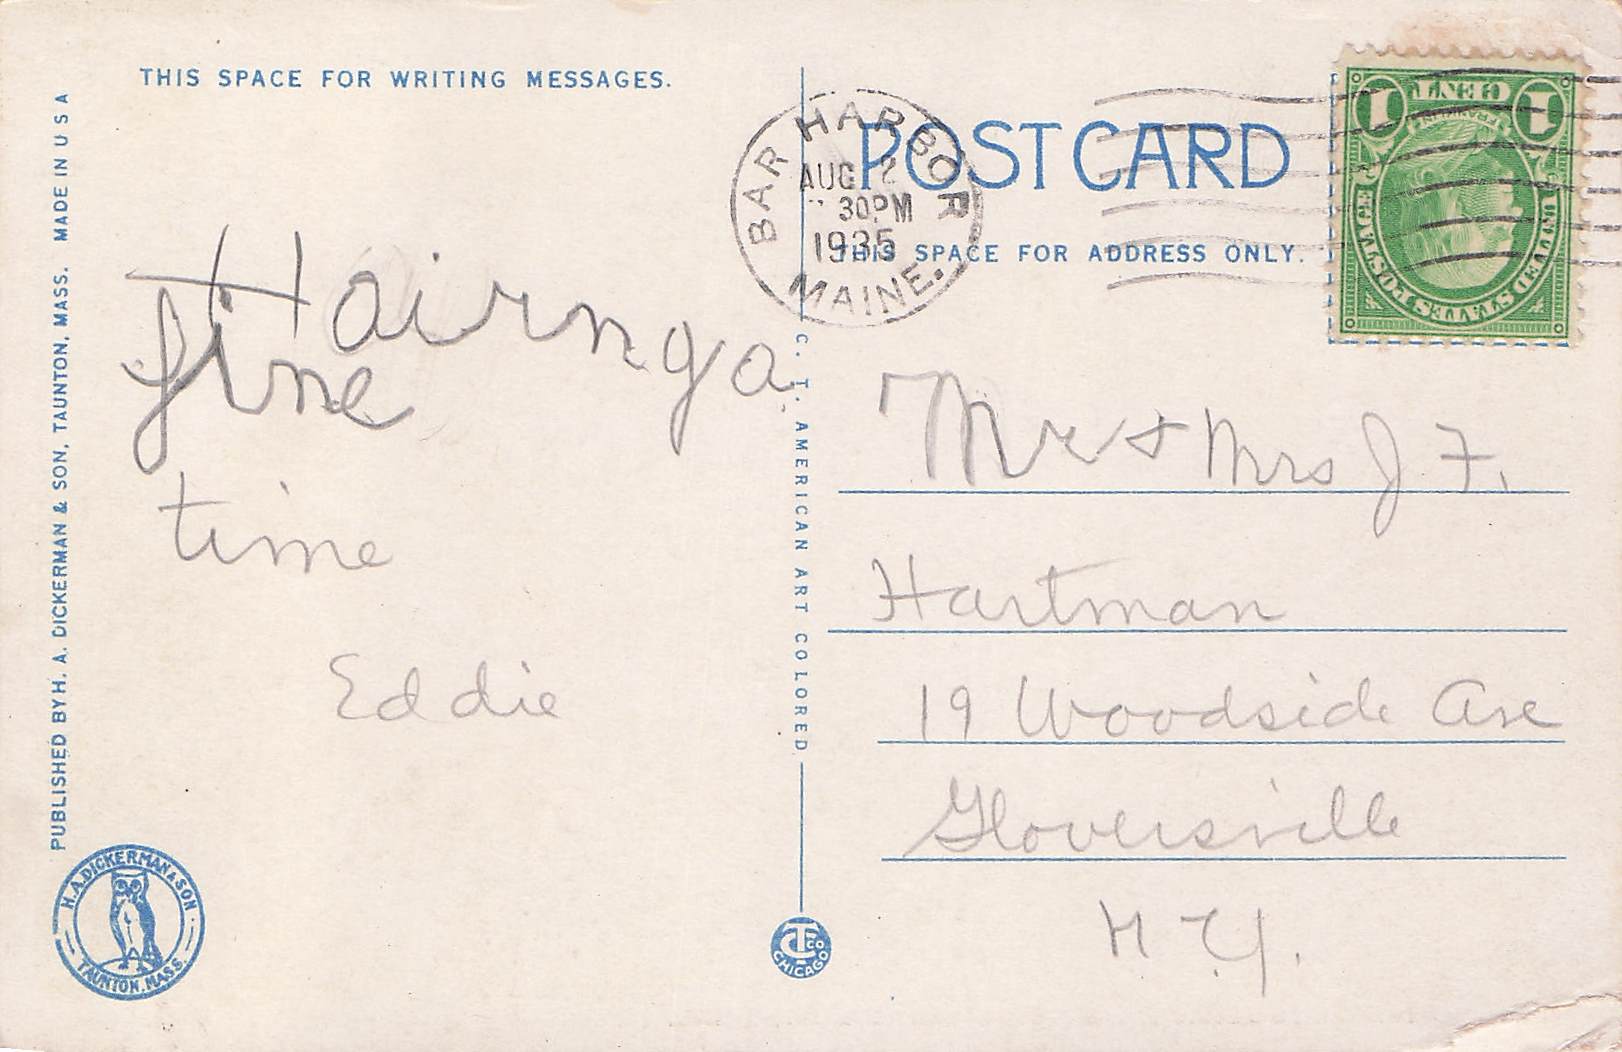 THIS SPACE FOR WRITING MESSAGES.
Hairnga
fine
time
Eddie
PUBLISHED BY H. A. DICKERMAN & SON, TAUNTON, MASS. MADE IN U S A
H.A. DICKERMAN & SON
TAUNTON, MASS.
C. T. AMERICAN ART COLORED
CT CO
CHICAGO
BAR HARBOR
AUG 2
30PM
1935
MAINE.
POST CARD
THIS SPACE FOR ADDRESS ONLY.
UNITED STATES POSTAGE
FRANKLIN
1 CENT 1
Mr & Mrs J. F.
Hartman
19 Woodside Ave
Gloversville
N. Y.